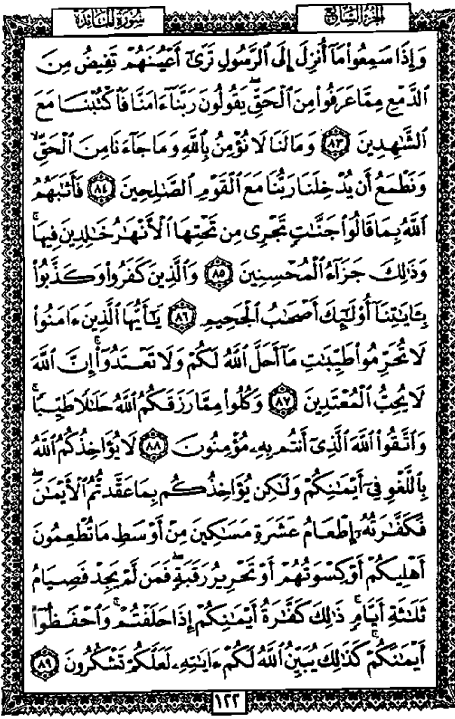 سُورَةُ المَائِدَةِ الجزء السابع
وَإِذَا سَمِعُوا۟ مَآ أُنزِلَ إِلَى ٱلرَّسُولِ تَرَىٰٓ أَعْيُنَهُمْ تَفِيضُ مِنَ
ٱلدَّمْعِ مِمَّا عَرَفُوا۟ مِنَ ٱلْحَقِّۖ يَقُولُونَ رَبَّنَآ ءَامَنَّا فَٱكْتُبْنَا مَعَ
ٱلشَّٰهِدِينَ ٨٣ وَمَا لَنَا لَا نُؤْمِنُ بِٱللَّهِ وَمَا جَآءَنَا مِنَ ٱلْحَقِّ
وَنَطْمَعُ أَن يُدْخِلَنَا رَبُّنَا مَعَ ٱلْقَوْمِ ٱلصَّٰلِحِينَ ٨٤ فَأَثَٰبَهُمُ
ٱللَّهُ بِمَا قَالُوا۟ جَنَّٰتٍ تَجْرِى مِن تَحْتِهَا ٱلْأَنْهَٰرُ خَٰلِدِينَ فِيهَاۚ
وَذَٰلِكَ جَزَآءُ ٱلْمُحْسِنِينَ ٨٥ وَٱلَّذِينَ كَفَرُوا۟ وَكَذَّبُوا۟
بِـَٔايَٰتِنَآ أُو۟لَٰٓئِكَ أَصْحَٰبُ ٱلْجَحِيمِ ٨٦ يَٰٓأَيُّهَا ٱلَّذِينَ ءَامَنُوا۟
لَا تُحَرِّمُوا۟ طَيِّبَٰتِ مَآ أَحَلَّ ٱللَّهُ لَكُمْ وَلَا تَعْتَدُوٓا۟ۚ إِنَّ ٱللَّهَ
لَا يُحِبُّ ٱلْمُعْتَدِينَ ٨٧ وَكُلُوا۟ مِمَّا رَزَقَكُمُ ٱللَّهُ حَلَٰلًا طَيِّبًاۚ
وَٱتَّقُوا۟ ٱللَّهَ ٱلَّذِىٓ أَنتُم بِهِۦ مُؤْمِنُونَ ٨٨ لَا يُؤَاخِذُكُمُ ٱللَّهُ
بِٱللَّغْوِ فِىٓ أَيْمَٰنِكُمْ وَلَٰكِن يُؤَاخِذُكُم بِمَا عَقَّدتُّمُ ٱلْأَيْمَٰنَۖ
فَكَفَّٰرَتُهُۥٓ إِطْعَامُ عَشَرَةِ مَسَٰكِينَ مِنْ أَوْسَطِ مَا تُطْعِمُونَ
أَهْلِيكُمْ أَوْ كِسْوَتُهُمْ أَوْ تَحْرِيرُ رَقَبَةٍۖ فَمَن لَّمْ يَجِدْ فَصِيَامُ
ثَلَٰثَةِ أَيَّامٍۚ ذَٰلِكَ كَفَّٰرَةُ أَيْمَٰنِكُمْ إِذَا حَلَفْتُمْۚ وَٱحْفَظُوٓا۟
أَيْمَٰنَكُمْۚ كَذَٰلِكَ يُبَيِّنُ ٱللَّهُ لَكُمْ ءَايَٰتِهِۦ لَعَلَّكُمْ تَشْكُرُونَ ٨٩
١٢٢